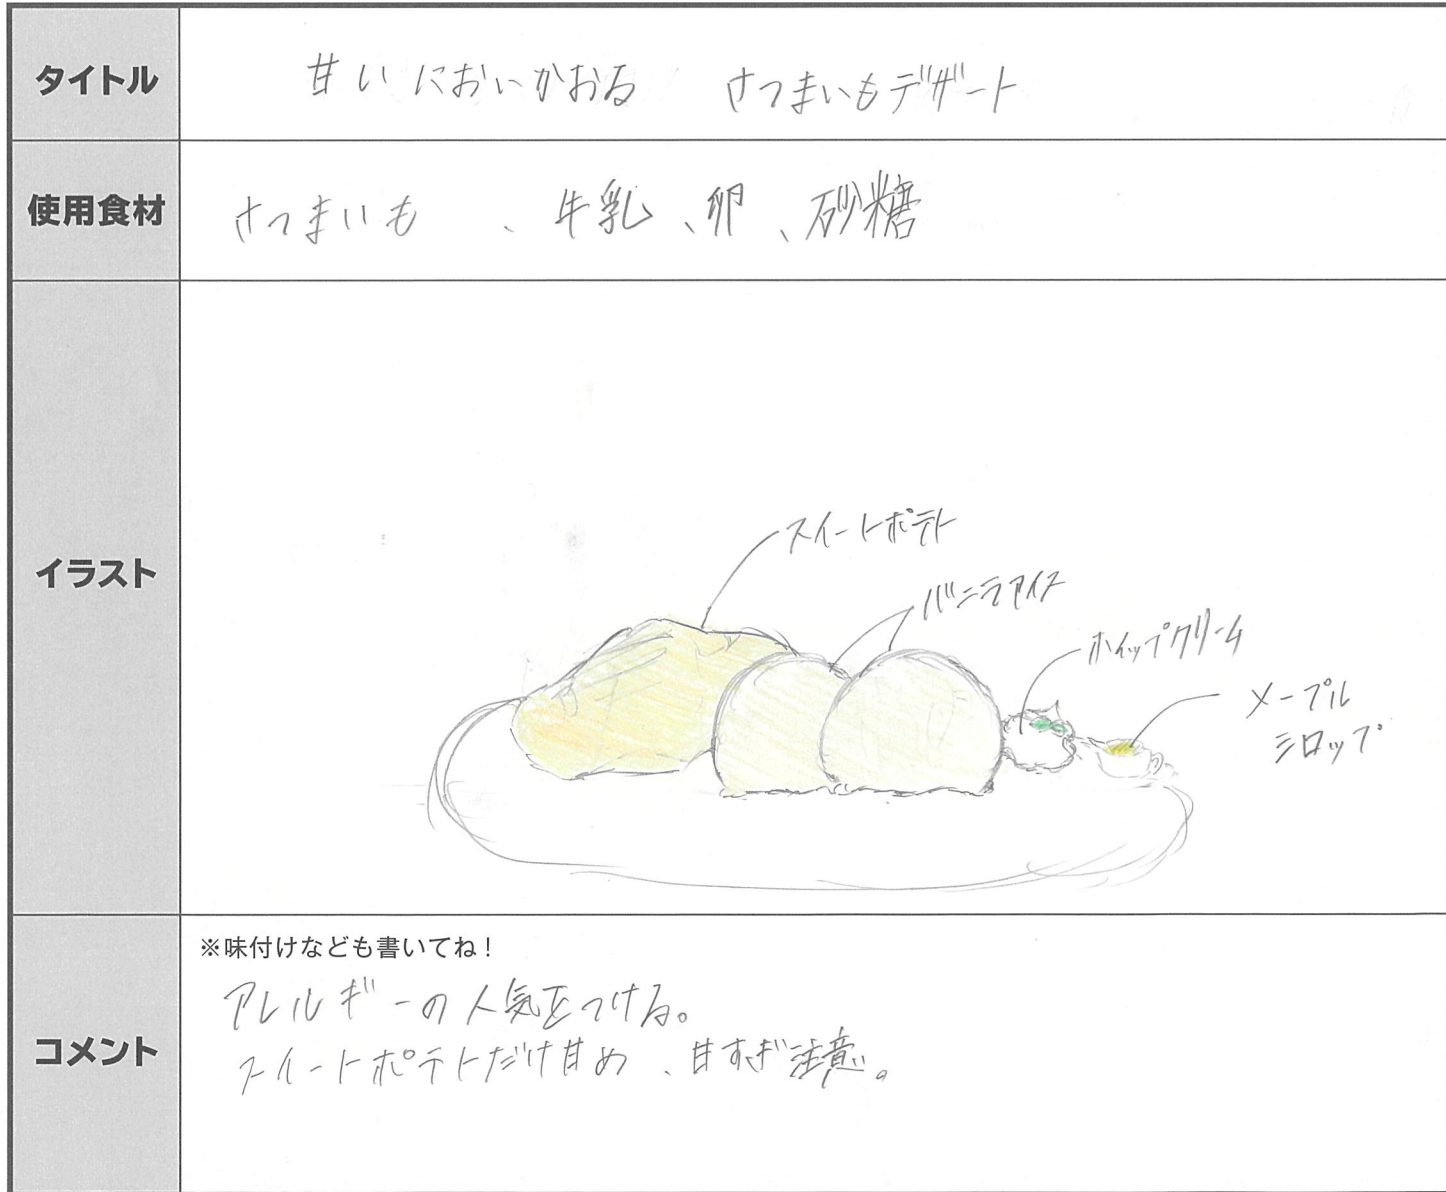 タイトル
甘いにおいかおる さつまいもデザート
使用食材
さつまいも 、牛乳、卵、砂糖
イラスト
スイートポテト
バニラアイス
ホイップクリーム
メープル
シロップ
コメント
※味付けなども書いてね!
アレルギーの人気をつける。
スイートポテトだけ甘め、甘すぎ注意。